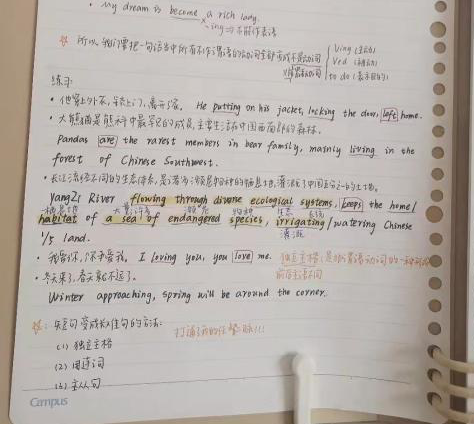 • My dream is become a rich lady.
ing⇒不能作表语
※ 所以我们需把一句话当中所有不作谓语的动词全部变成不是动词 Ving (主动)
Ved (被动)
to do (表示目的)
练习:
• 他穿上外衣,锁上门,离开了家。 He putting on his jacket, locking the door, left home.
• 大熊猫是熊科中最罕见的成员,主要生活在中国西南部的森林。
Pandas are the rarest members in bear family, mainly living in the
forest of Chinese Southwest.
• 长江流经不同的生态体系,是诸多濒危物种的栖息地,灌溉了中国五分之一的土地。
YangZi River flowing through diverse ecological systems, keeps the home/
栖息地 大量许多 濒危 物种 生态 系统
habitat of a sea of endangered species, irrigating/watering Chinese
灌溉
1/5 land.
• 我爱你,你爱我。 I loving you, you love me. 独立主格:是非谓语动词的一种形式
前后主语不同
• 冬天来了,春天就不远了。
Winter approaching, spring will be around the corner.
※: 短句变成长难句的方法: 打通我的任督二脉!!!
(1) 独立主格
(2) 用连词
(3) 主从句
Campus